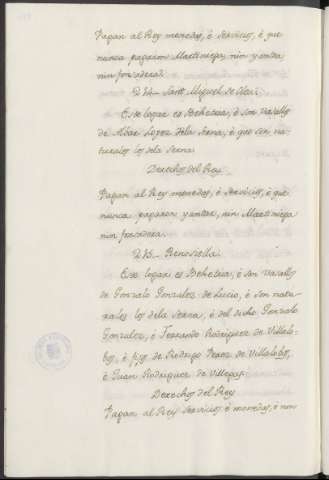 Pagan al Rey monedas, è servicios, è que
nunca pagaron Martiniega, nin yantar
nin fonsadera.
Sant Miguel de
Este logar es Behetria, è son vasallos
de Alvar Lopez dela Serna, è que son na-
turales los dela Serna.
Derechos del Rey.
Pagan al Rey monedas, è servicios, è que
nunca pagaron yantar, nin Martiniega
nin fonsadera.
Este logar es Behetria, è son vasallos
de Gonzalo Gonzalez de Lucio, è son natu-
rales los dela Serna, è del dicho Gonzalo
Gonzalez, è Fernando Rodriguez de Villalo-
bos, è fijos de Rodrigo Perez de Villalobos,
è Juan Rodriguez de Villegas.
Derechos del Rey
Pagan al Rey servicios è monedas, è non